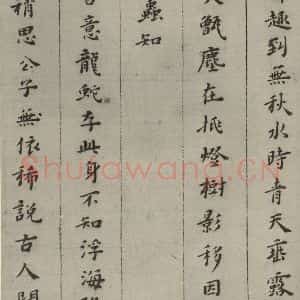 趣到無秋水時青天垂露
甑塵在挑燈樹影移因
蟲知
意龍蛇本此身不知浮海
稍思公子無依稀說古人
Shufawang.CN